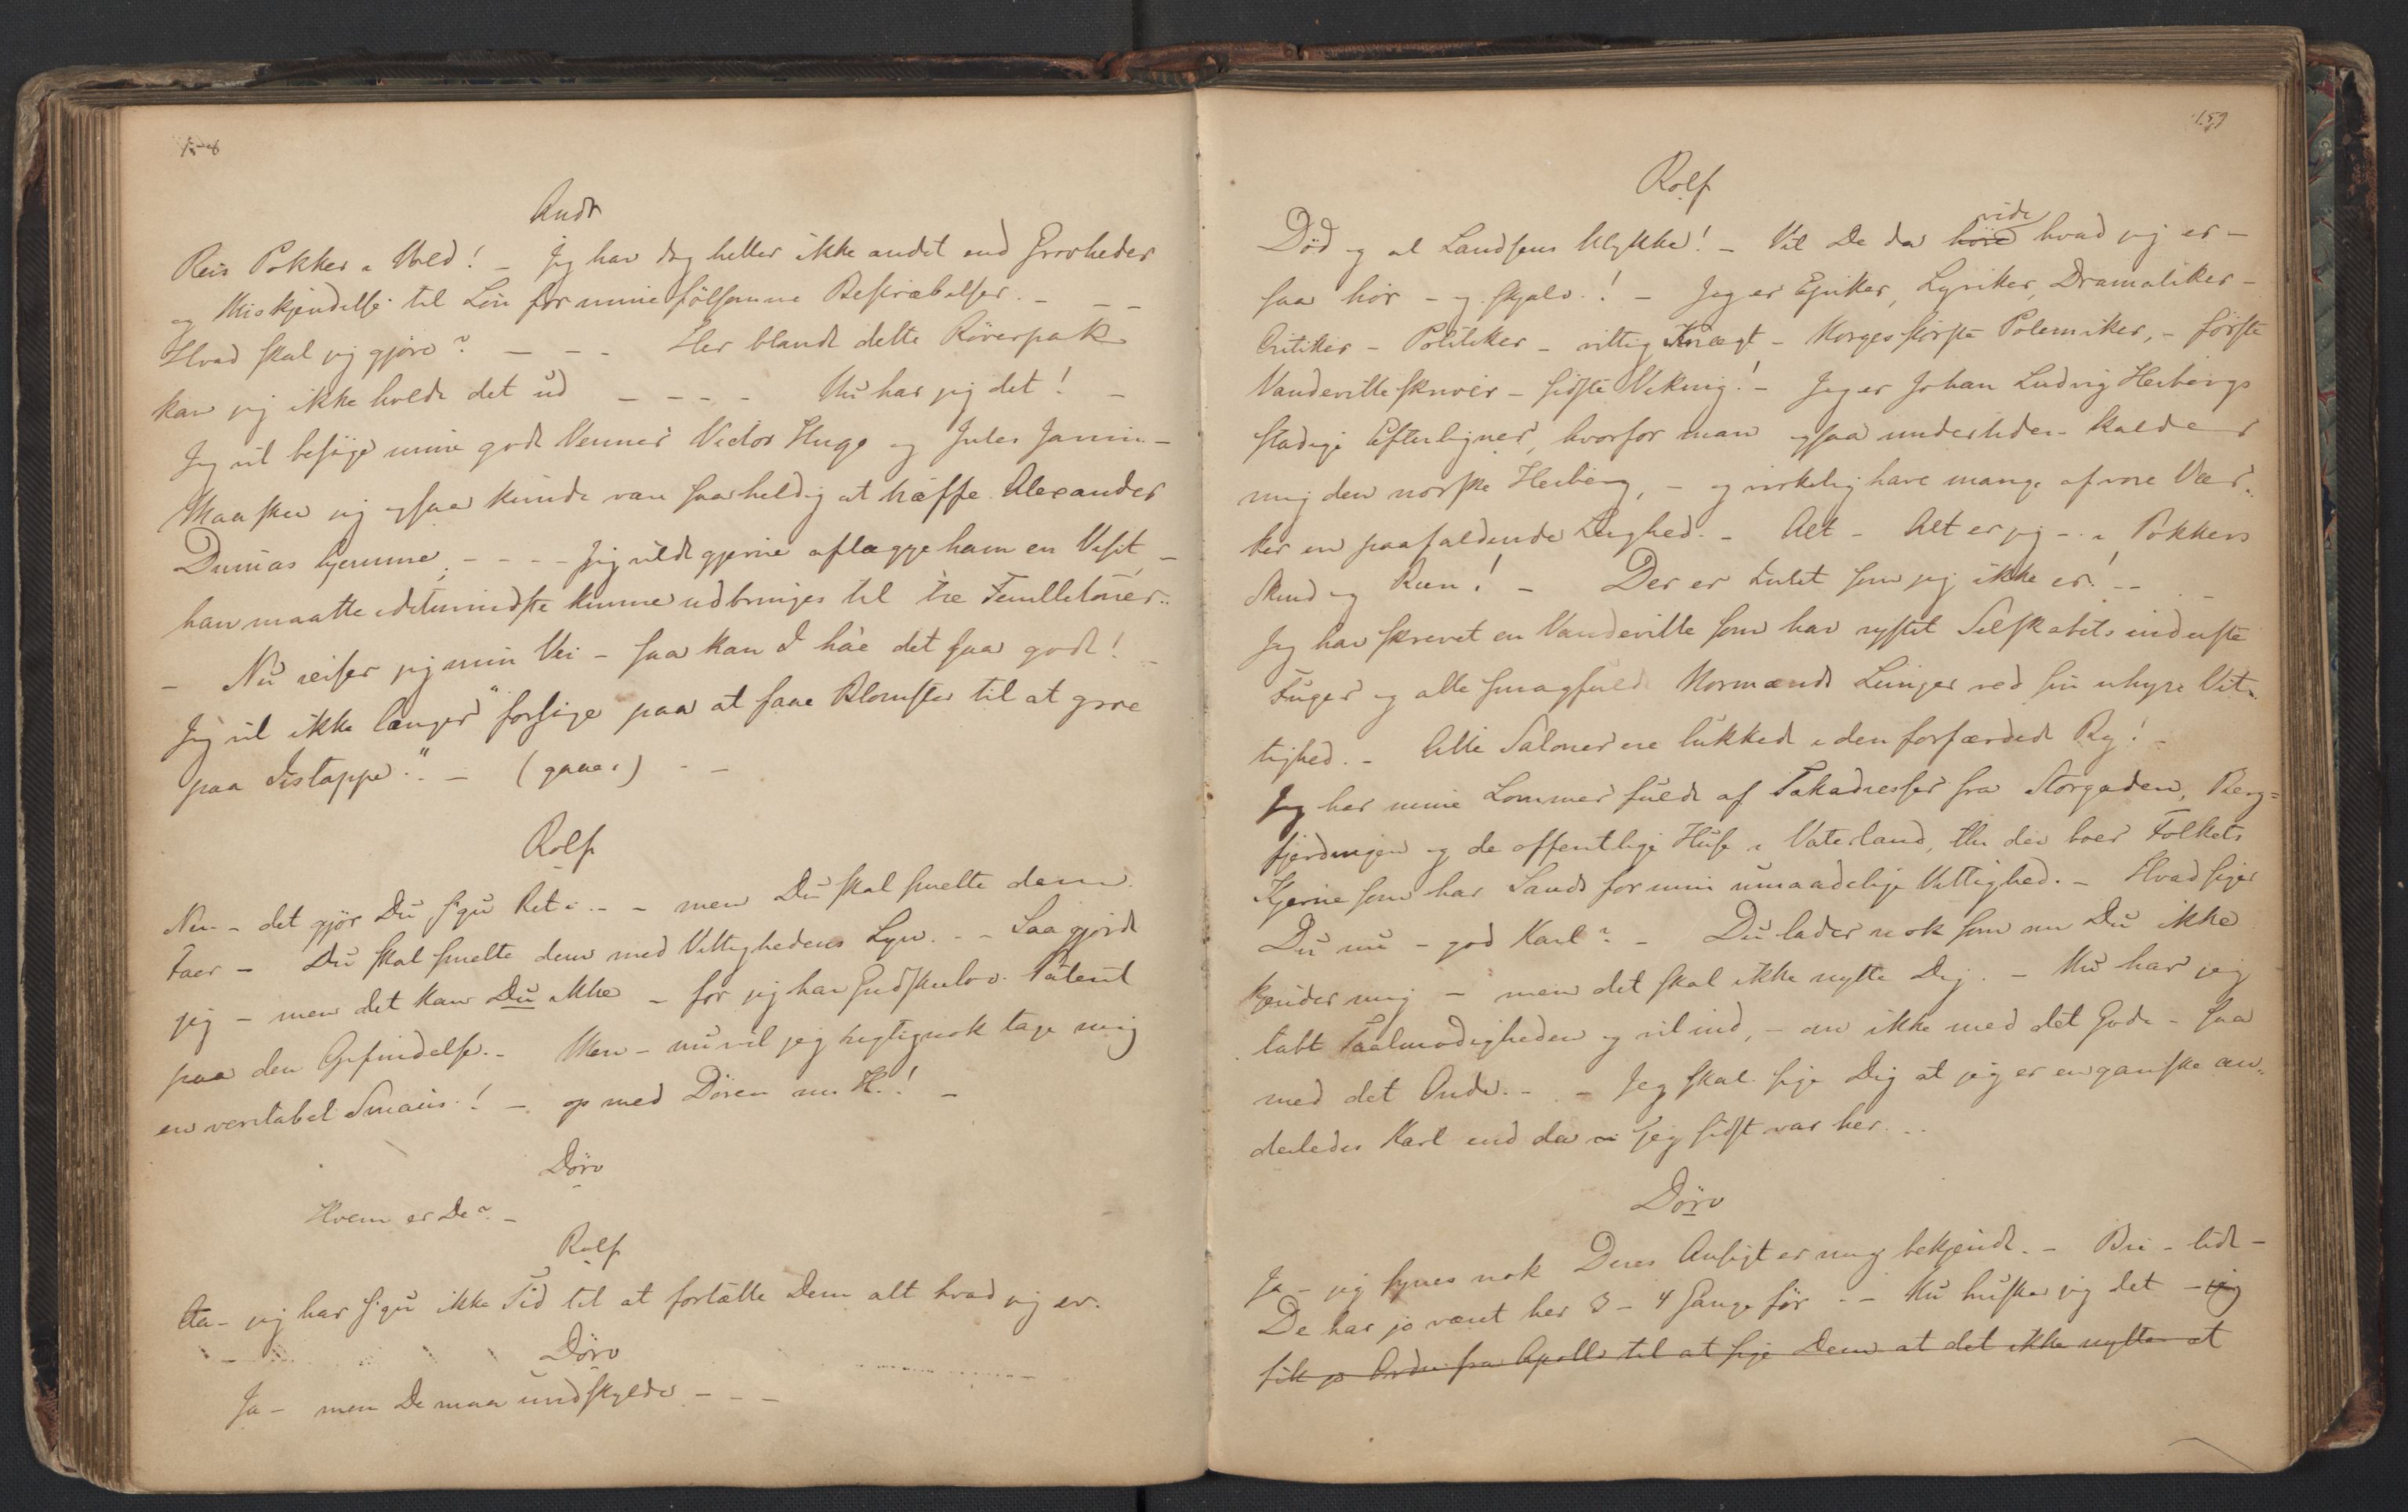 158
Knud
Reis Pokker i Vold! – Jeg har dog heller ikke andet end Grovheder
og Miskjendelse til Løn for mine følsomme Bestræbelser. – – –
Hvad skal jeg gjøre? – – – Her blandt dette Røverpak
kan jeg ikke holde det ud – – – – Nu har jeg det! –
Jeg vil besøge mine gode Venner Victor Hugo og Jules Janin –
Maaskee jeg ogsaa kunde være saa heldig at træffe Alexander
Dumas hjemme. – – – Jeg vilde gjerne aflægge ham en Visit, –
han maatte idetmindste kunne udbringes til tre Feuilletoner..
– Nu reiser jeg min Vei – saa kan I ha'e det saa godt! –
Jeg vil ikke længer "forsøge paa at faae Blomster til at groe
paa Istappe". – (gaaer) – –
Rolf
Nei – det gjør Du sgu Ret i. – – men Du skal smelte dem
Faer – Du skal smelte dem med Vittighedens Lyn. – – Saa gjorde
jeg – men det kan Du ikke – for jeg har Gudskelov Patent
paa den Opfindelse. – Men – nu vil jeg rigtignok tage mig
en veritabel Smaus! – op med Døren m. H.! –
Dørv
Hvem er De? –
Rolf
Aa – jeg har sgu ikke Tid til at fortælle Dem alt hvad jeg er.
Dørv
Ja – men De maa undskylde – – –
159
Rolf
Død og al Landsens Ulykke! – Vil De da høre vide hvad jeg er –
saa hør – og skjælv! – Jeg er Epiker, Lyriker, Dramatiker –
Critiker – Politiker – vittig Knægt – Norges største Polemiker, – første
Vaudevilleskriver – sidste Viking! – Jeg er Johan Ludvig Heibergs
stadige Efterligner, hvorfor man ogsaa undertiden kalder
mig den norske Heiberg, – og virkelig have mange af vore Vær-
ker en paafaldende Lighed. – Alt – Alt er jeg – i Pokkers
Skind og Been! – Der er Intet som jeg ikke er! – –
Jeg har skrevet en Vaudeville som har rystet Selskabets inderste
Fuger og alle smagfulde Normænds Lunger ved sin uhyre Vit-
tighed. – Alle Saloner ere lukkede i den forfærdede By! –
Jeg har mine Lommer fulde af Takadresser fra Storgaden, Berg-
fjerdingen og de offentlige Huse i Vaterland, thi der boer Folkets
Kjerne som har Sands for min umaadelige Vittighed. – Hvad siger
Du nu – god Karl? – Du lader nok som om Du ikke
kjender mig – men det skal ikke nytte Dig. – Nu har jeg
tabt Taalmodigheden og vil ind, – om ikke med det Gode – saa
med det Onde. – – Jeg skal sige Dig at jeg er en ganske an-
derledes Karl end da jeg sidst var her. –
Dørv
Ja – jeg synes nok Deres Ansigt er mig bekjendt. – Bi – lidt –
De har jo været her 3 – 4 Gange før – – Nu husker jeg det – jeg
fik jo Ordre fra Apollo til at sige Dem at det ikke nytter at